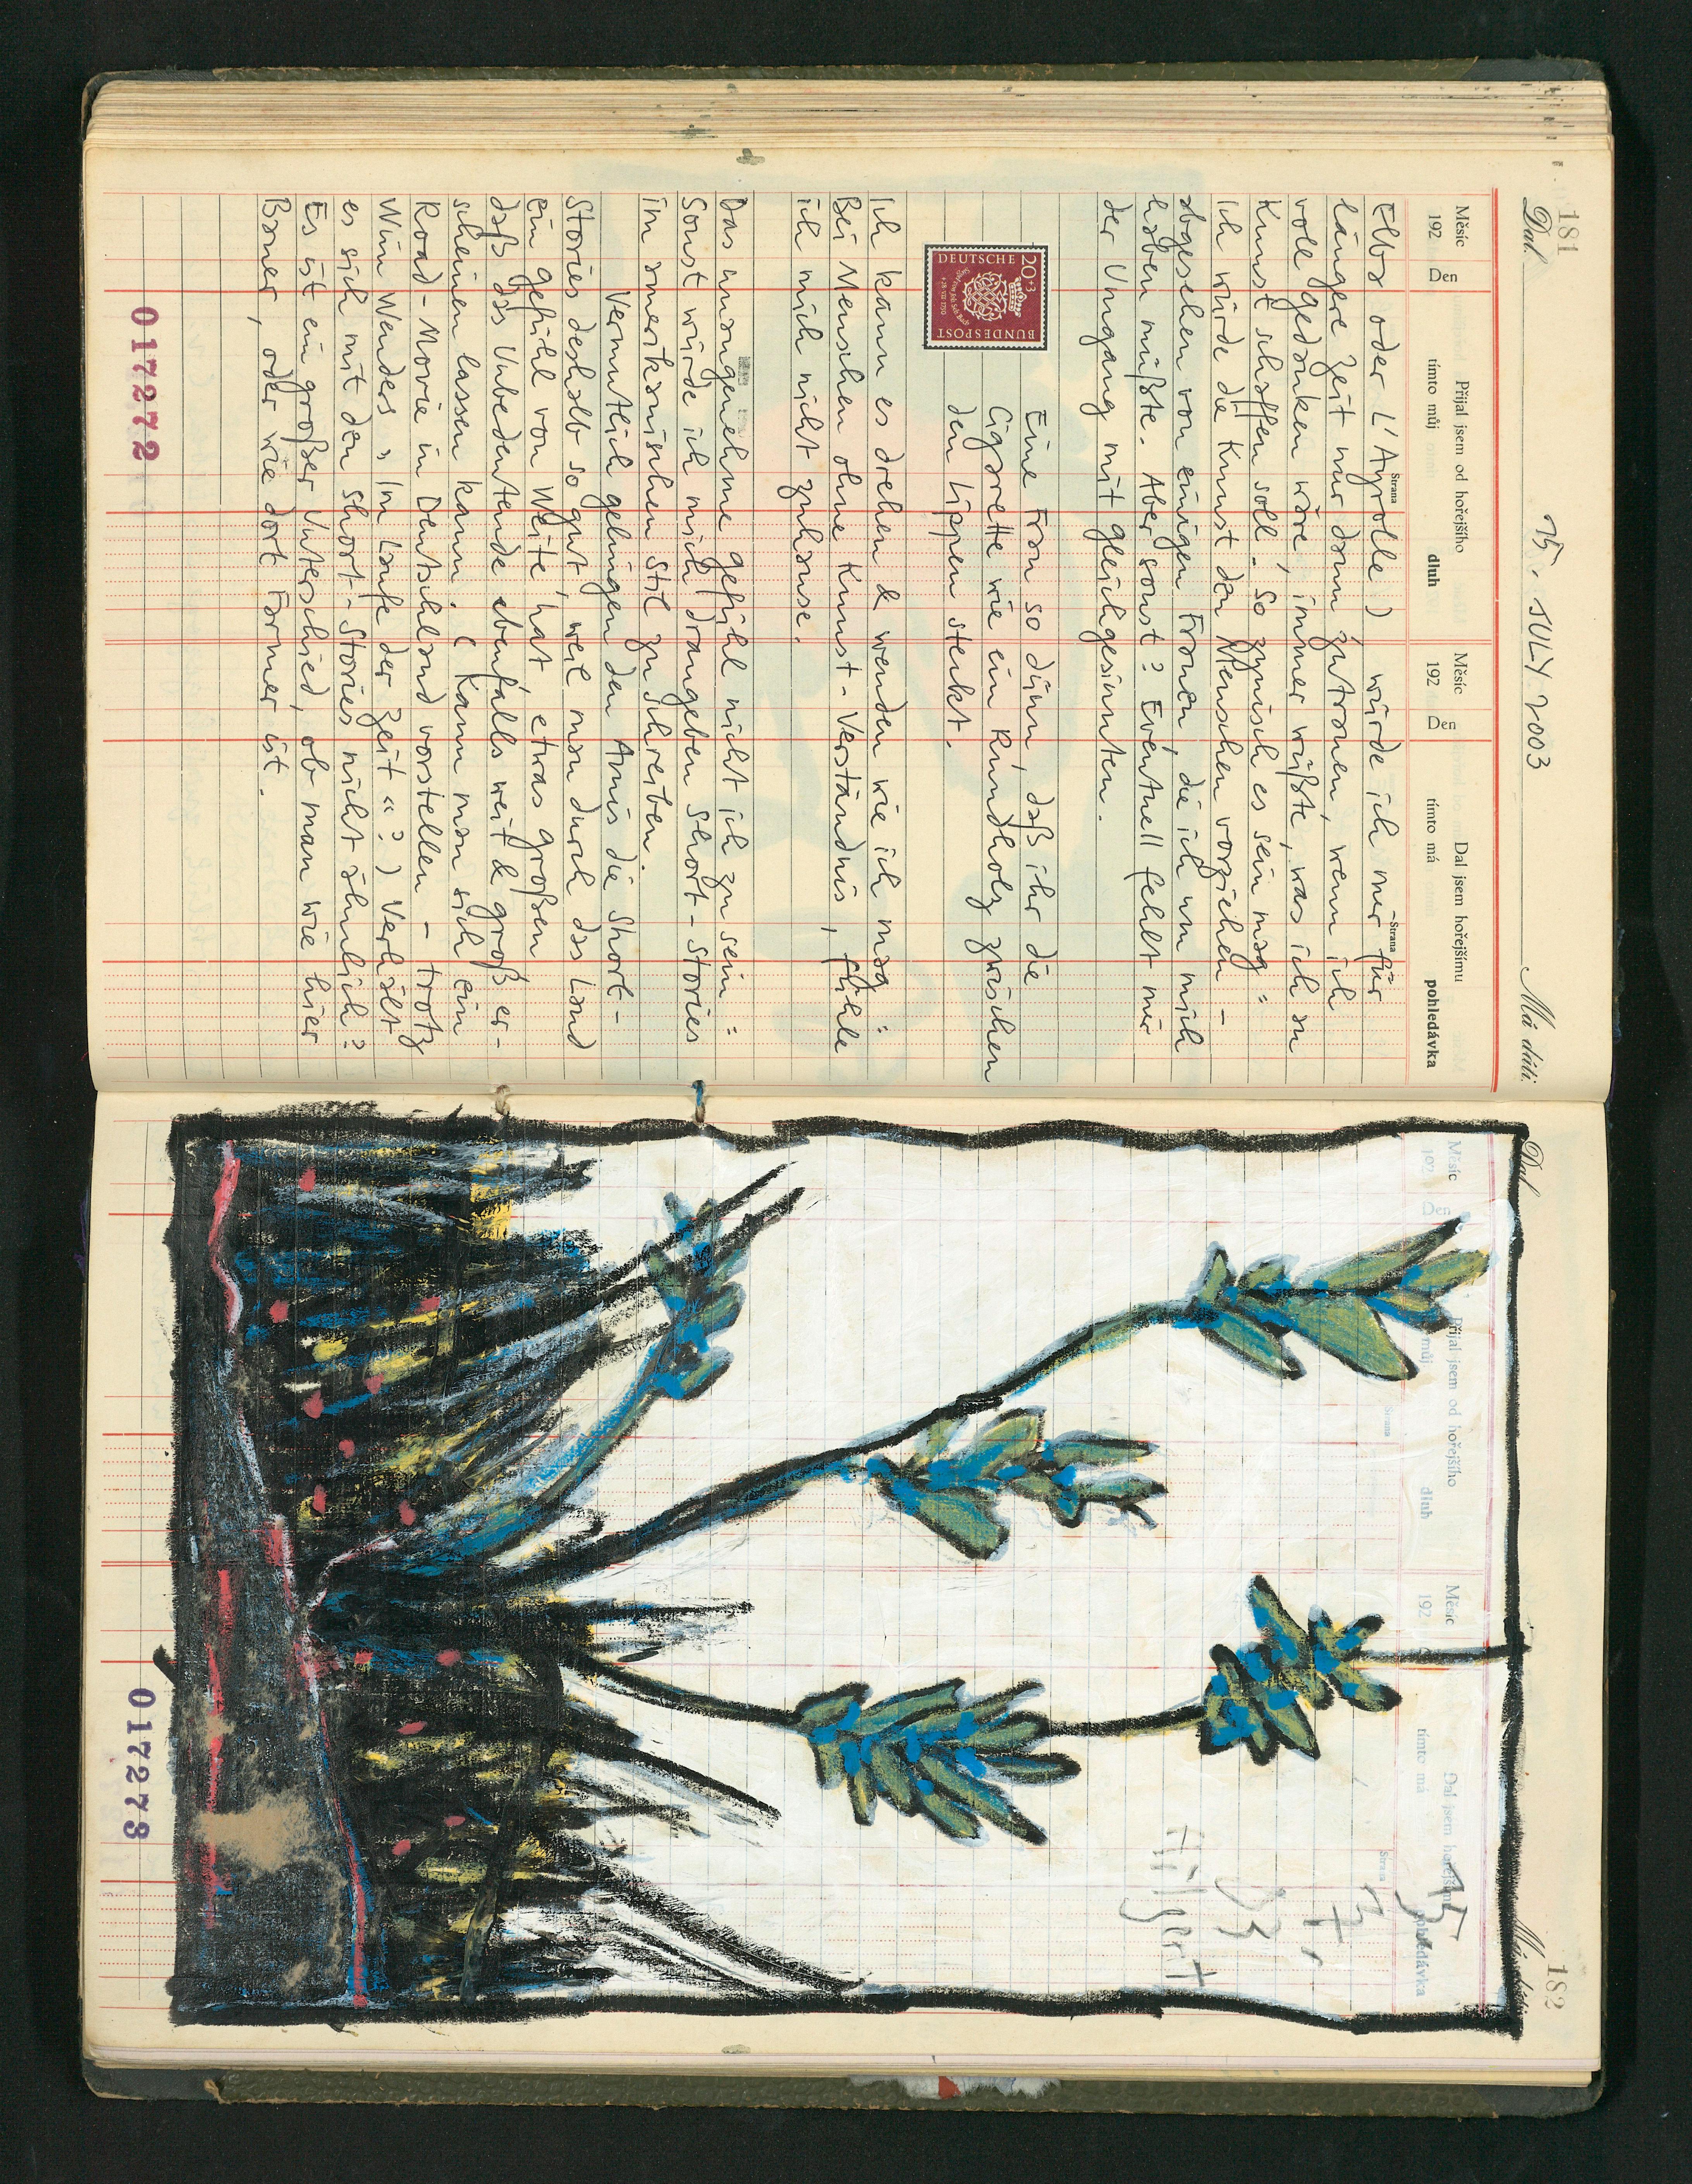 181
15. JULY 2003
Dal
Má dáti.
Měsíc
192
Den
Přijal jsem od hořejšího
tímto můj
dluh
Strana
Měsíc
192
Den
Dal jsem hořejšímu
tímto má
pohledávka
Strana
Elba oder L'Ayrolle) würde ich mir für
längere Zeit nur dann zutrauen, wenn ich
voll Gedanken wäre, immer wüßte, was ich an
Kunst schaffen soll. So zynisch es sein mag:
Ich würde die Kunst den Menschen vorziehen –
abgesehen von einigen Frauen, die ich um mich
haben müßte. Aber sonst? Eventuell fehlt mir
der Umgang mit gleichgesinnten.
Eine Frau so dünn, daß ihr die
Cigarette wie ein Rundholz zwischen
den Lippen steckt.
20+3
DEUTSCHE
BUNDESPOST
Ich kann es drehen & wenden wie ich mag:
Bei Menschen ohne Kunst-Verständnis, fühle
ich mich nicht zuhause.
Das unangenehme Gefühl nicht ich zu sein:
Sonst würde ich mich drangeben Short-Stories
im amerikanischen Stil zu schreiben.
Vermutlich gelingen den Amis die Short-
Stories deshalb so gut, weil man durch das Land
ein Gefühl von Weite, hat etwas großen
daß das Unbedeutende ebenfalls weit & groß er-
scheinen lassen kann. (Kann man sich ein
Road-Movie in Deutschland vorstellen – trotz
Wim Wenders »Im Laufe der Zeit«?) Verhält
es sich mit den Short-Stories nicht ähnlich?
Es ist ein großer Unterschied, ob man wie hier
Bauer, oder wie dort Farmer ist.
017272
182
Dal
Měsíc
192
Den
Přijal jsem od hořejšího
můj
dluh
Strana
Měsíc
192
Dal jsem hořejšímu
tímto má
pohledávka
Strana
15
7.
03
Hilgert
017273